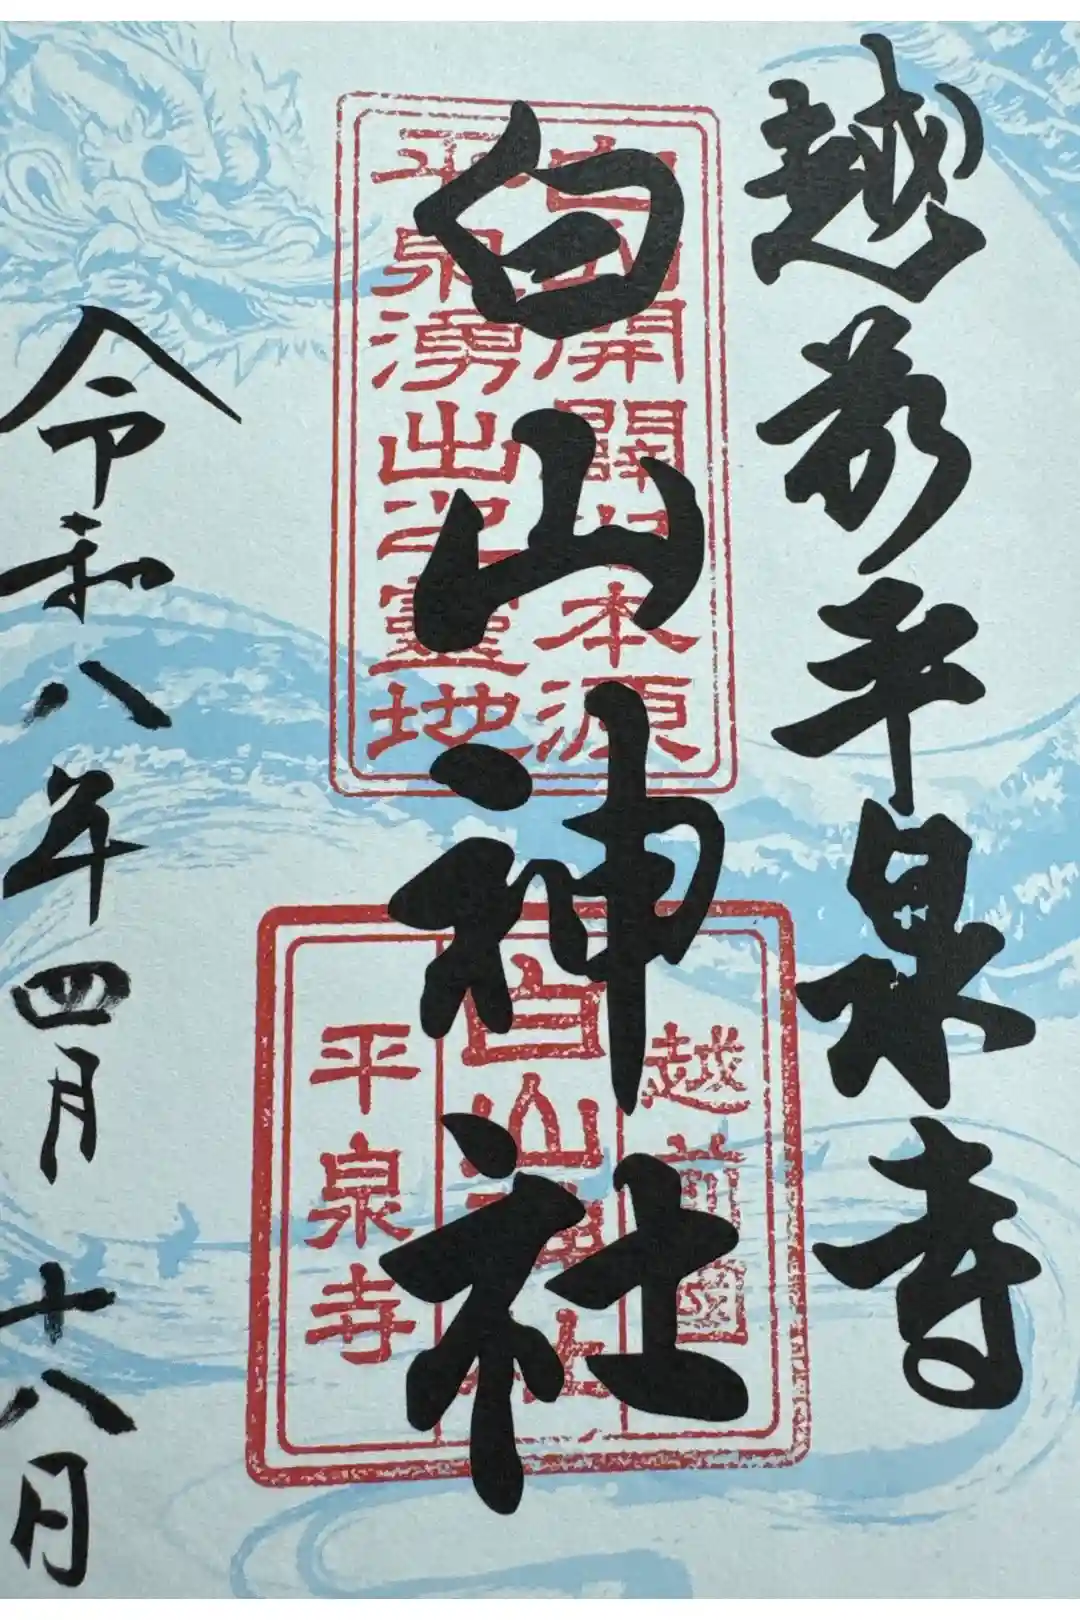 越前平泉寺
白山神社
令和八年四月十八日
白山開闢之本源
平泉湧出之靈地
越前國
白山神社
平泉寺